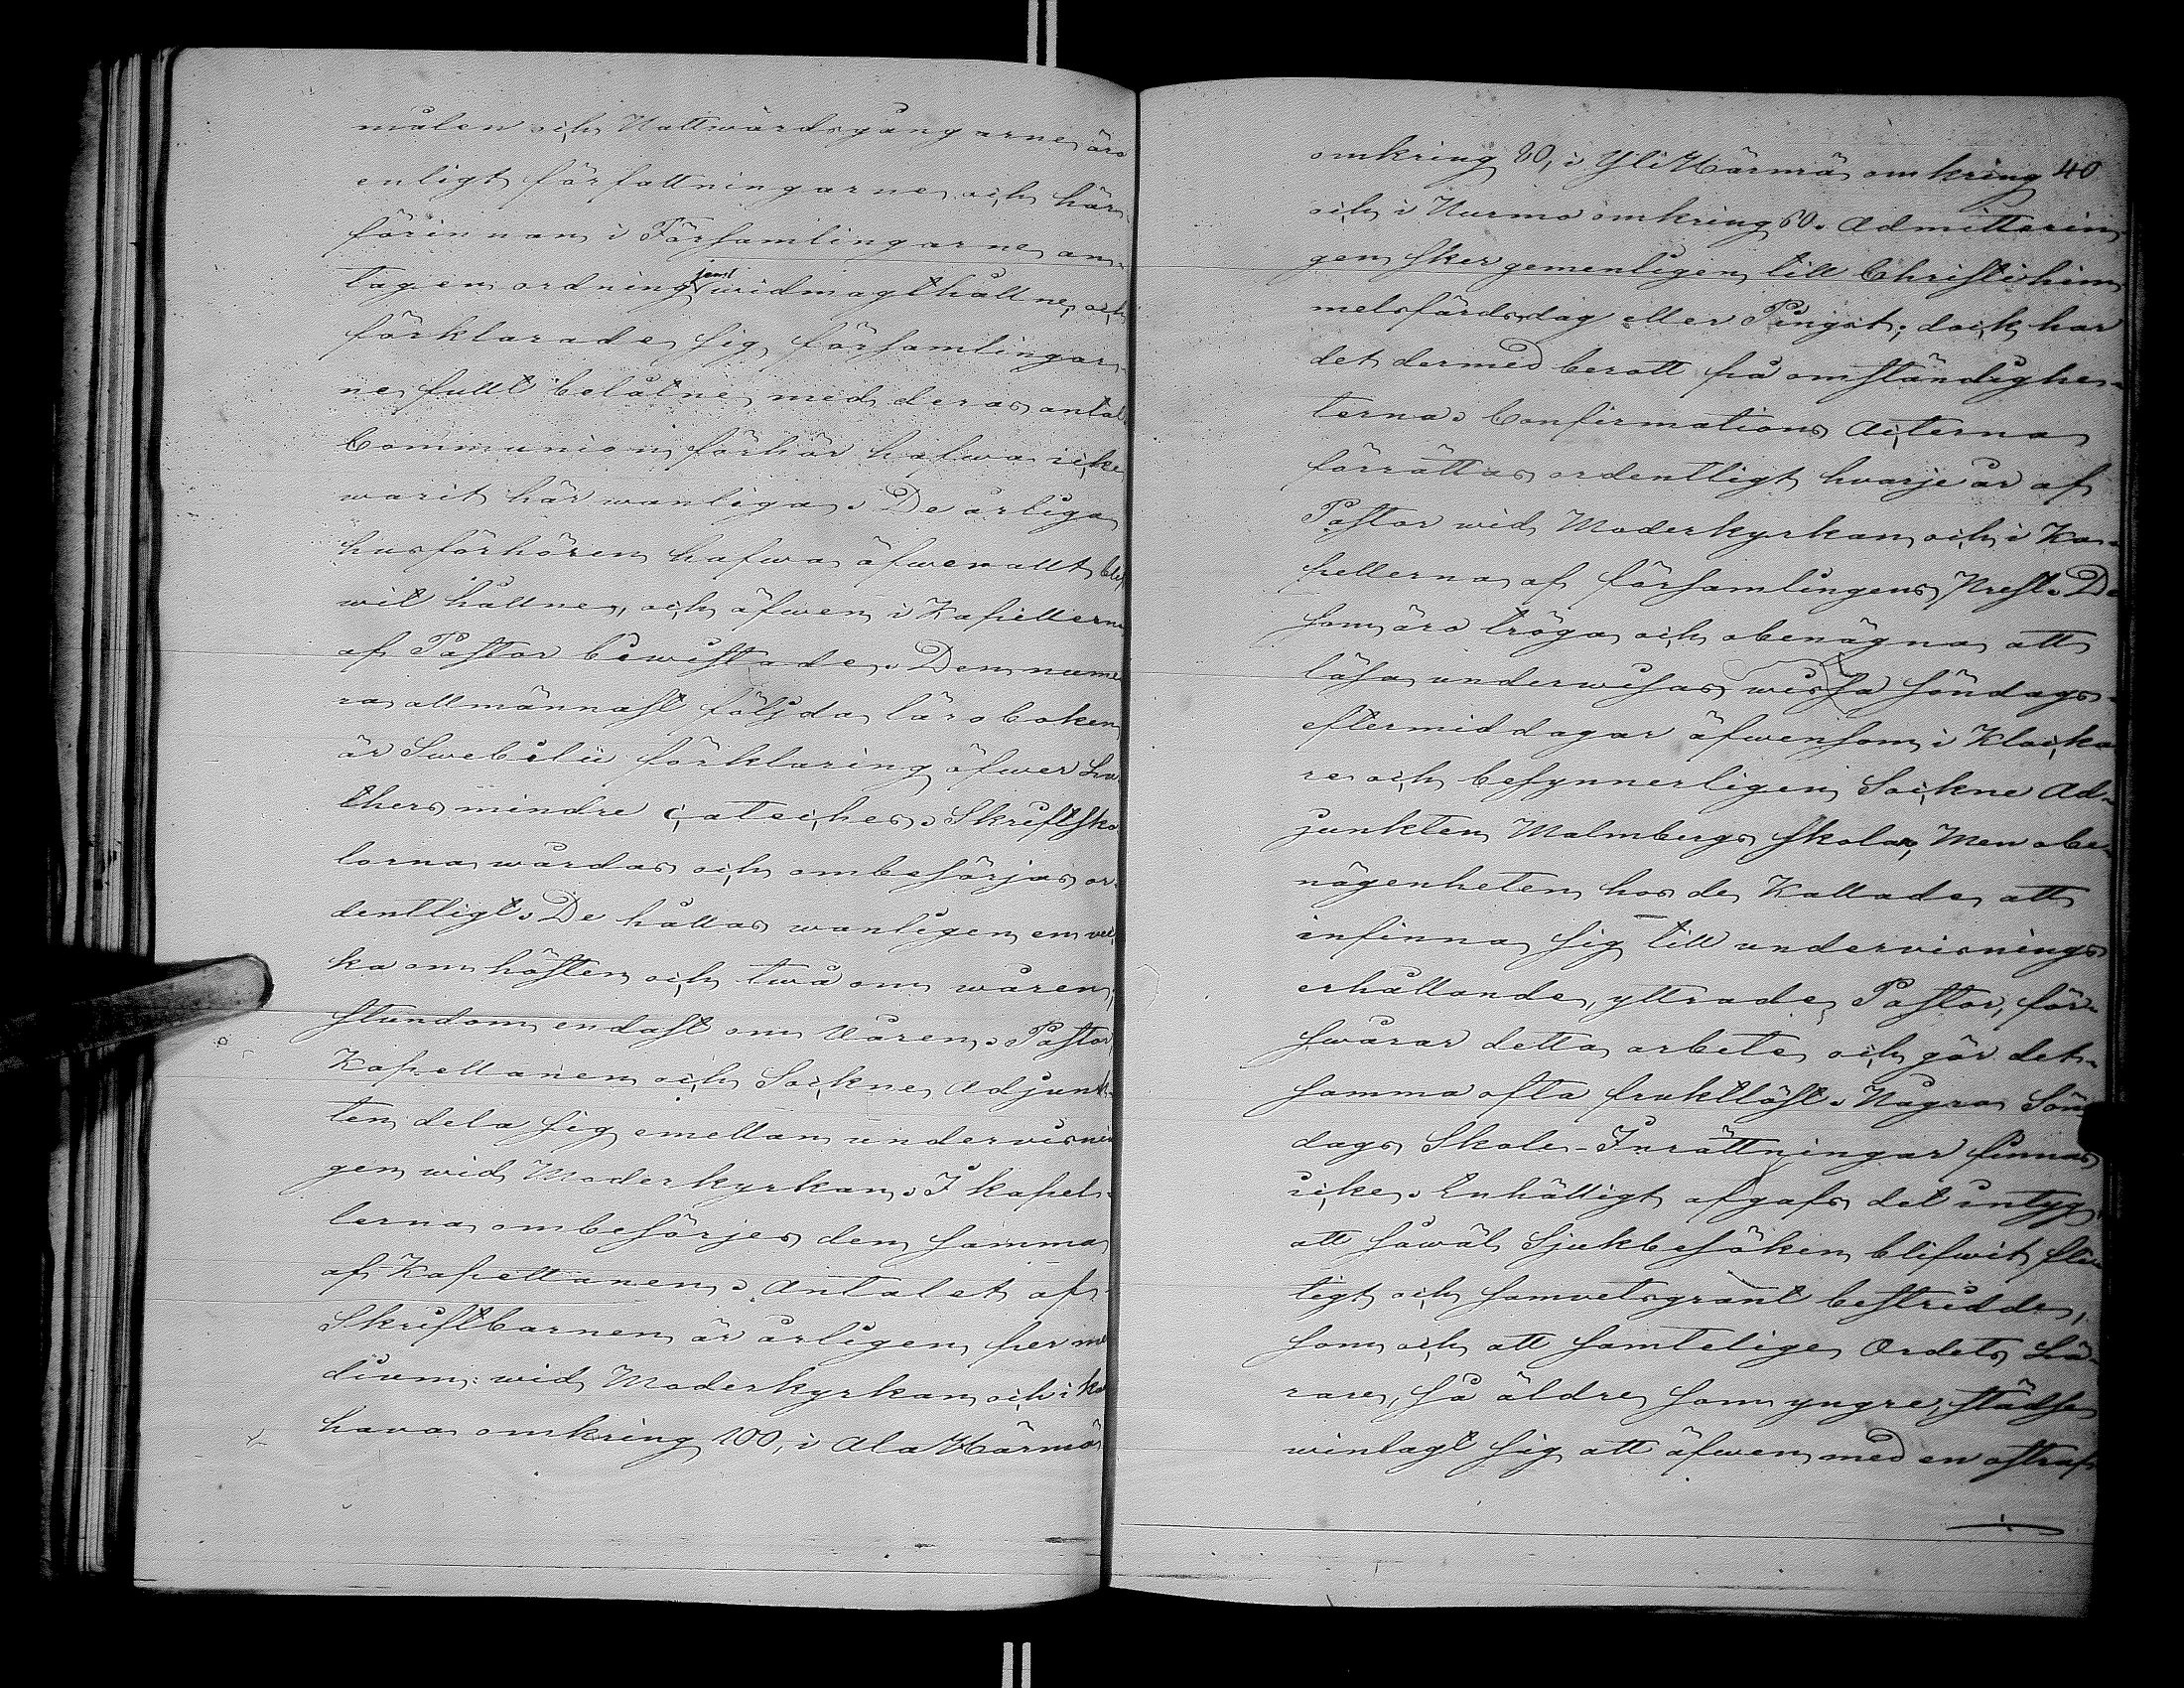 målen och Nattwardsgångarne äro
enligt författningarne och här
förinnan i Församlingarne an-
tagen ordning jemt widmagthållne, och
förklarade sig församlingar-
ne fullt belåtne med deras antal.
Communion förhör hafwa icke
warit här wanliga. De årliga
husförhören hafwa äfwen allt blif-
wit hållne, och äfwen i Kapellerne
af Pastor bewistade. Den nume-
ra allmännast följda läroboken
är Swebilii förklaring öfwer Lu-
thers mindre cateches. Skriftsko-
lorna wårdas och ombesörjas or-
dentligt. De hållas wanligen en vec-
ka om hösten och twå om wåren,
stundom endast om Våren. Pastor,
Kapellanen och Sockne Adjunk-
ten dela sig emellan undervisnin
gen wid Moderkyrkan. I kapel-
lerna ombesörjes den samma
af Kapellanen. Antalet af
Skriftbarnen är årligen per me
dium: wid Moderkyrkan och i Kau
hava omkring 100, i Ala Härmä
omkring 80, i Yli Härmä omkring 40
och i Nurmo omkring 60. Admitterin-
gen sker gemenligen till Christi him-
melsfärdsdag eller Pingst; dock har
det dermed berott på omständighe-
terna. Confirmations Acterna
förrättas ordentligt hvarje år af
Pastor wid Moderkyrkan och i Ka-
pellerna af församlingens Prest. De
som äro tröga och obenägna att
läsa underwisas wissa söndags-
eftermiddagar äfwensom i Klocka-
re och besynnerligen Sockne Ad-
junkten Malmbergs skolor, Men obe-
nägenheten hos de Kallade att
infinna sig till undervisnings
erhållande, yttrade Pastor, för-
swårar detta arbete och gör det-
samma ofta fruktlöst. Några Sön-
dags Skole-Inrättningar finnas
icke. Enhälligt afgafs det intyg,
att såwäl Sjukbesöken blifwit flit
tigt och samvetsgrant bestridde,
som och att samtelige Ordets Lä-
rare, så äldre som yngre, städse
winlagt sig att äfwen med en ostraf-